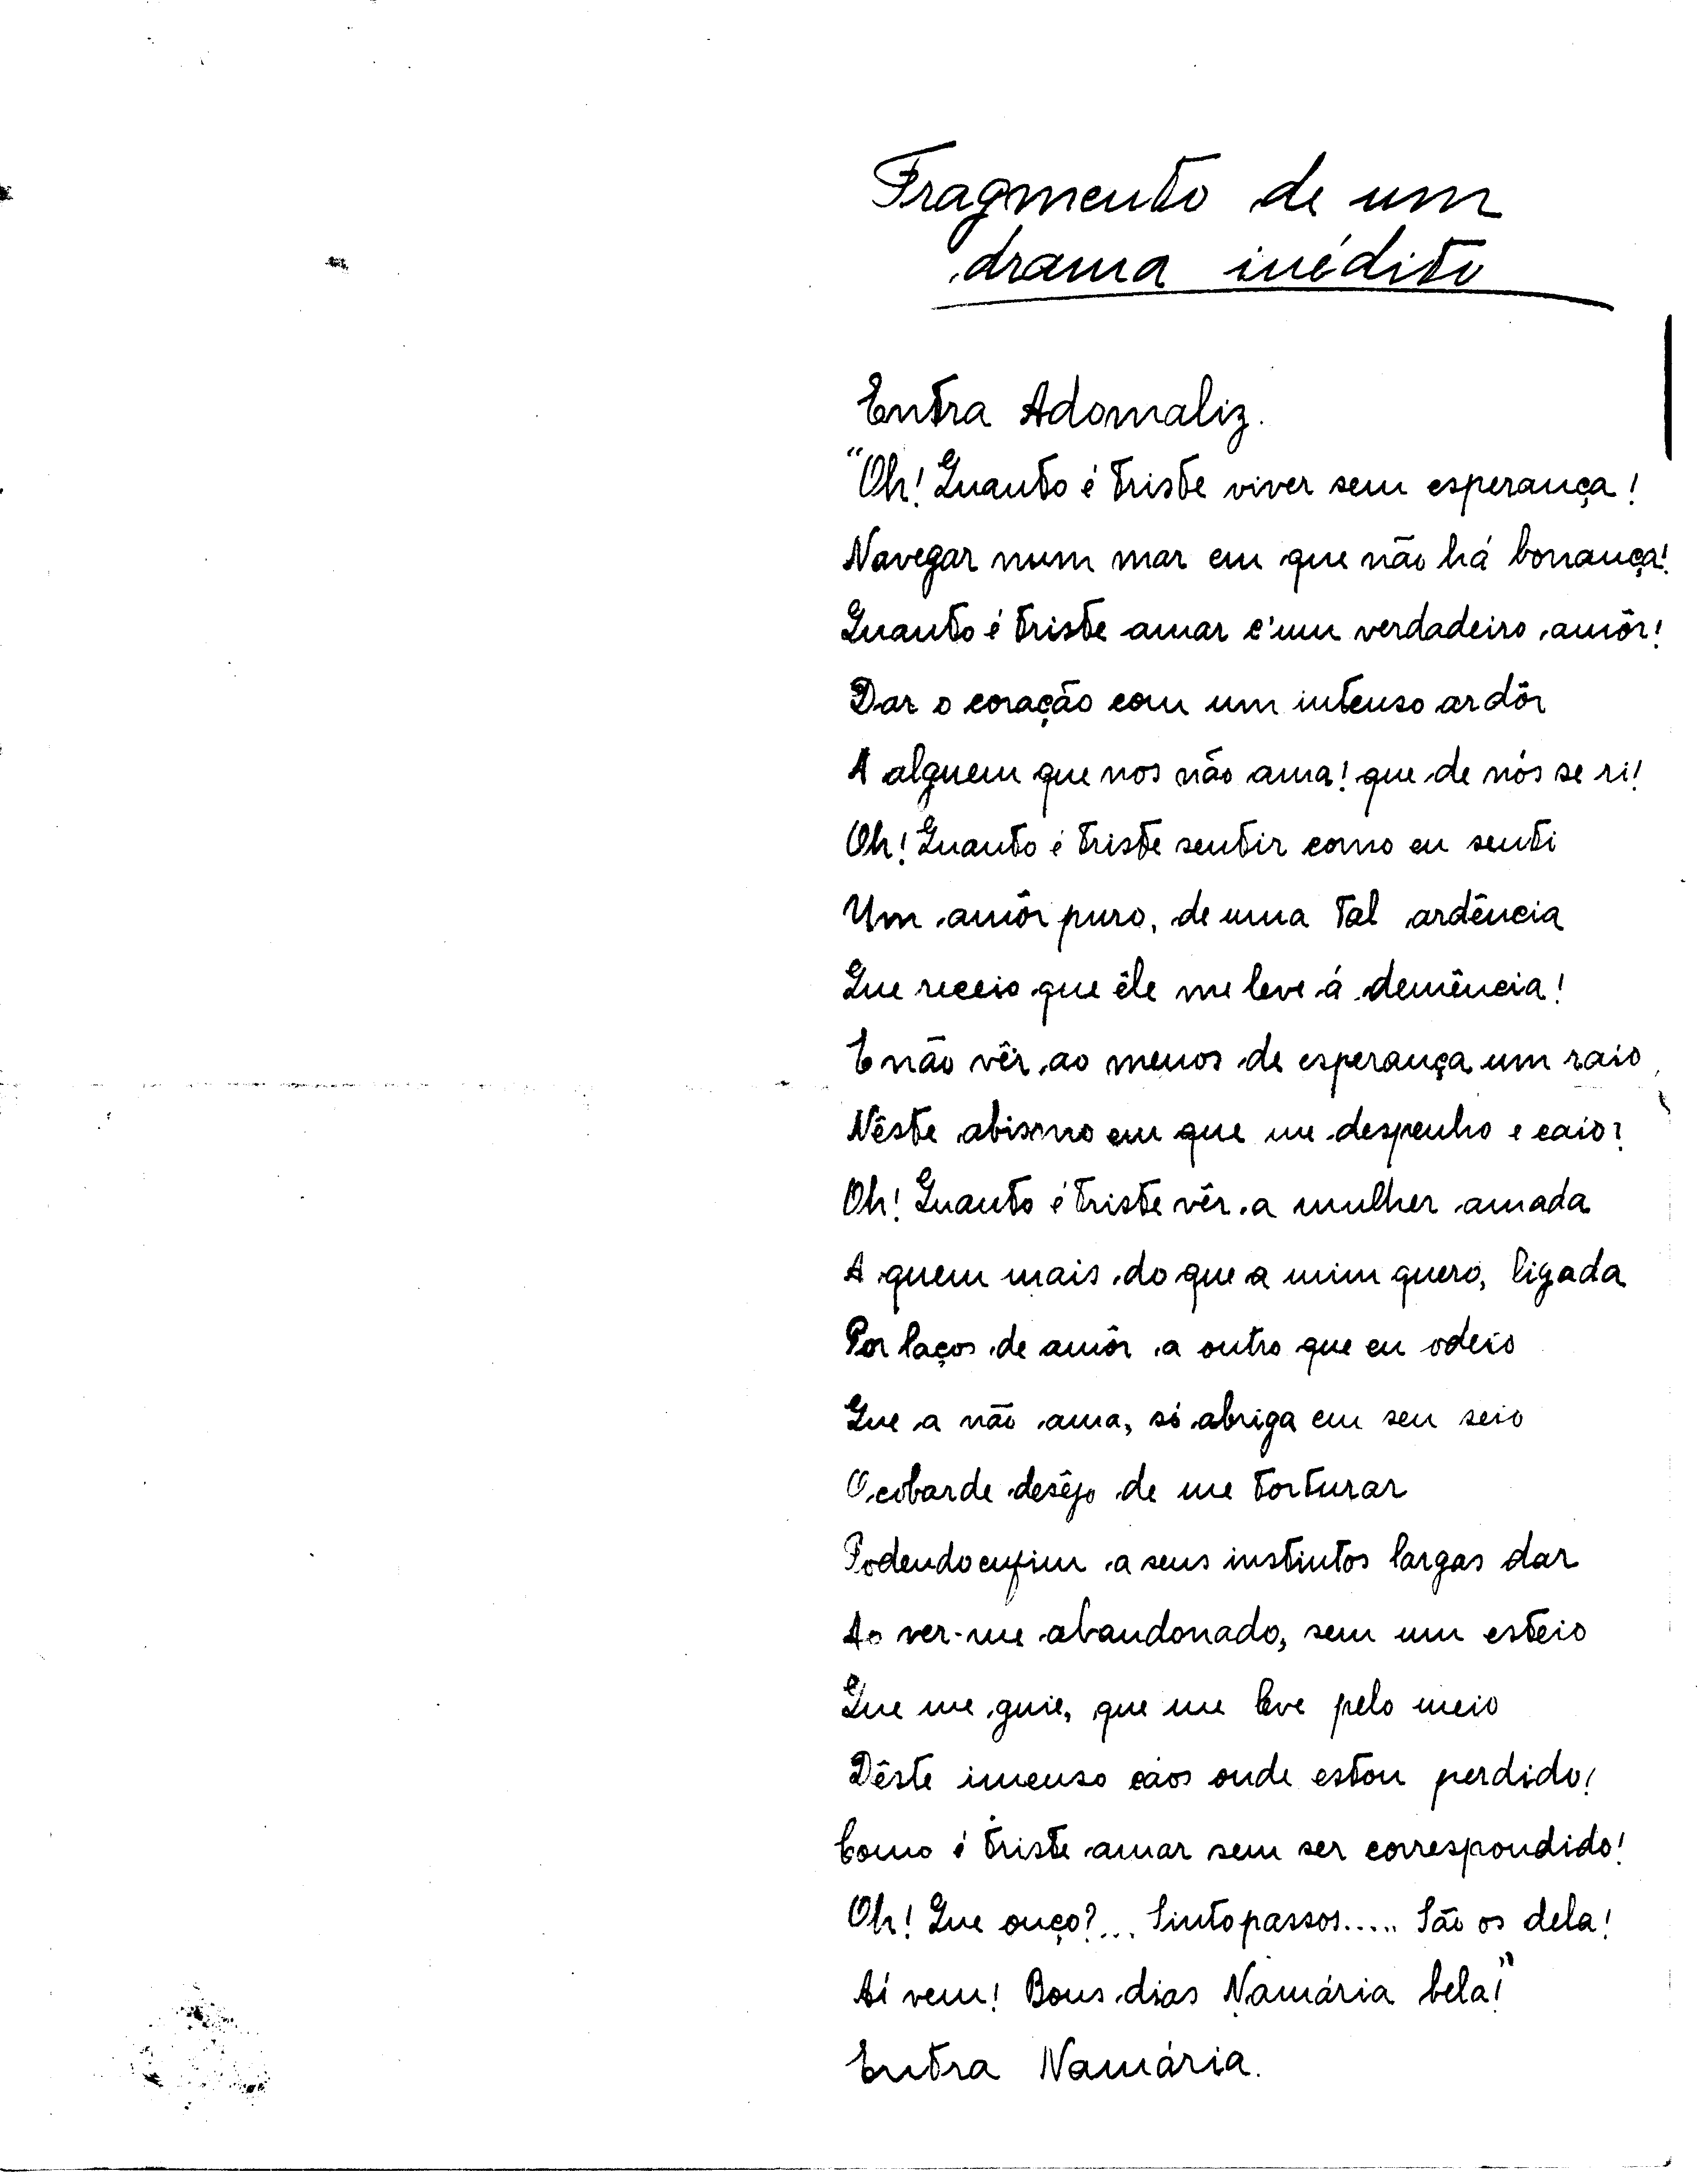 Fragmento de um
drama inédito
Entra Adomaliz.
"Oh! Quanto é triste viver sem esperança!
Navegar num mar em que não há bonança!
Quanto é triste amar c'um verdadeiro amôr!
Dar o coração com um intenso ardôr
A alguem que nos não ama! que de nós se ri!
Oh! Quanto é triste sentir como eu senti
Um amôr puro, de uma tal ardência
Que receio que êle me leve á demência!
E não vêr ao menos de esperança um raio
Nêste abismo em que me despenho e caio?
Oh! Quanto é triste vêr a mulher amada
A quem mais do que a mim quero, ligada
Por laços de amôr a outro que eu odeio
Que a não ama, só abriga em seu seio
O cobarde desêjo de me torturar
Podendo enfim a seus instintos largas dar
Ao ver-me abandonado, sem um esteio
Que me guie, que me leve pelo meio
Dêste imenso cáos onde estou perdido!
Como é triste amar sem ser correspondido!
Oh! Que ouço?... Sinto passos..... São os dela!
Aí vem! Bons dias Namária bela!"
Entra Namária.